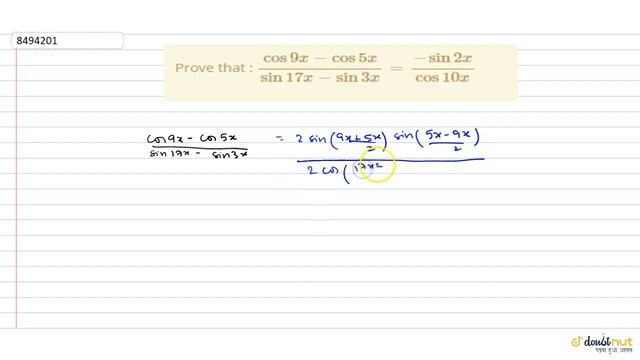 8494201
Prove that : (cos 9x − cos 5x)/(sin 17x − sin 3x) = (− sin 2x)/(cos 10x)
(cos 9x − cos 5x)/(sin 17x − sin 3x) = 2 sin((9x+5x)/2) sin((5x−9x)/2)
2 cos (17x
doubtnut